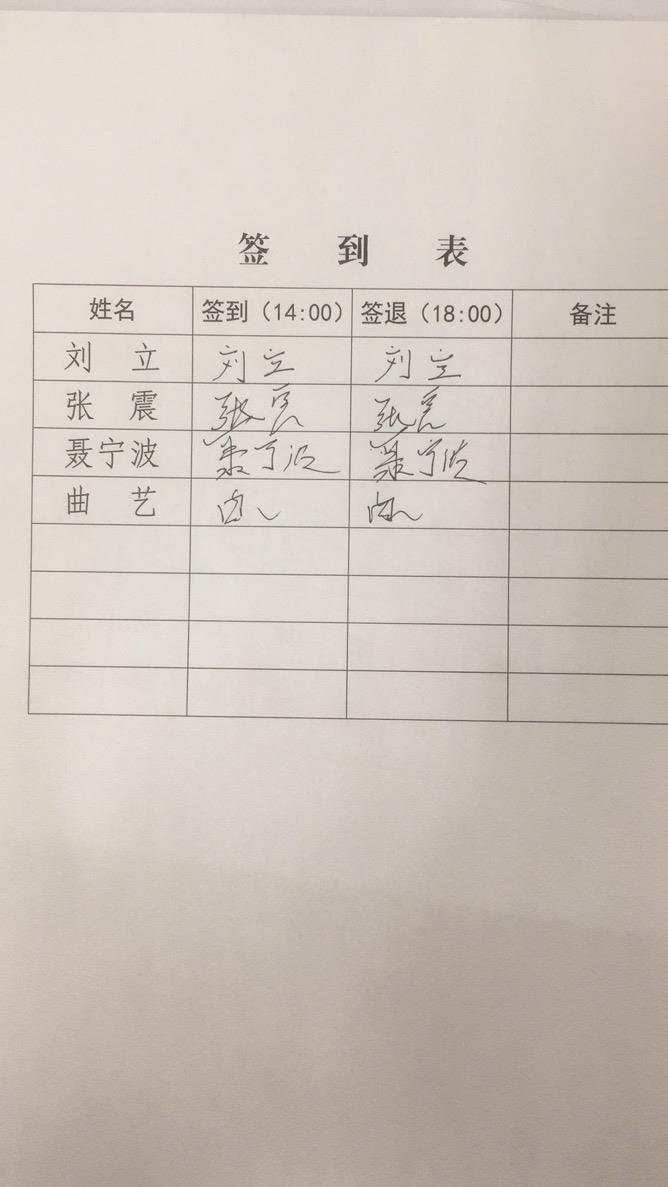 签 到 表
姓名 签到（14:00） 签退（18:00） 备注
刘 立 刘立 刘立
张 震 张震 张震
聂宁波 聂宁波 聂宁波
曲 艺 曲艺 曲艺